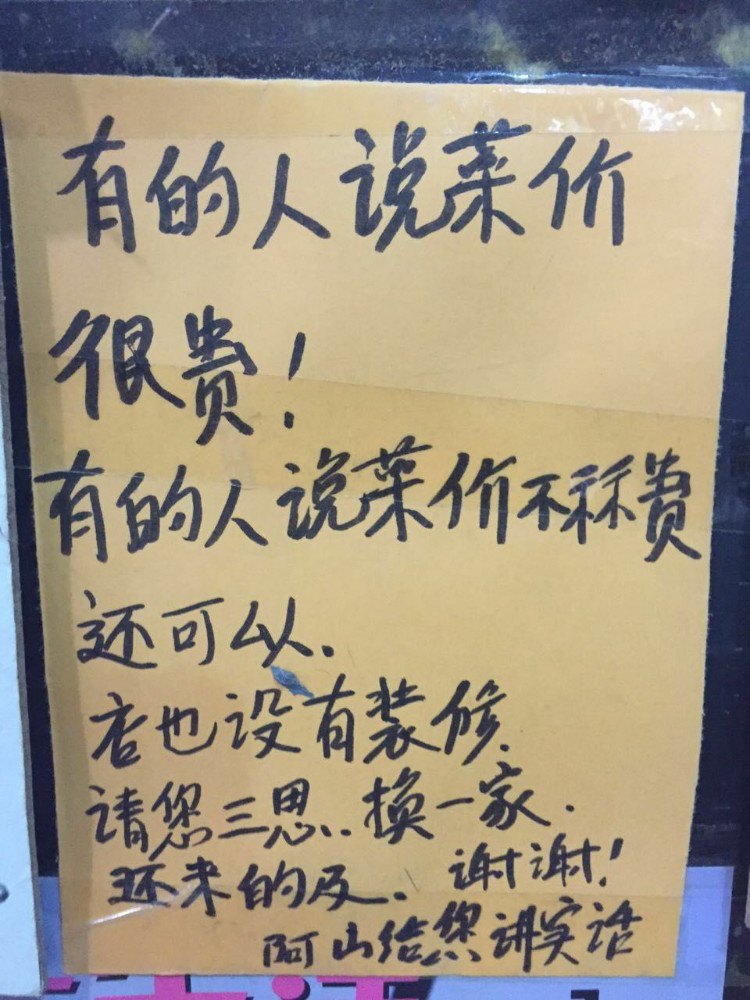 有的人说菜价
很贵！
有的人说菜价不算贵
还可以.
店也没有装修.
请您三思.换一家.
还来的及. 谢谢！
阿山给您讲实话